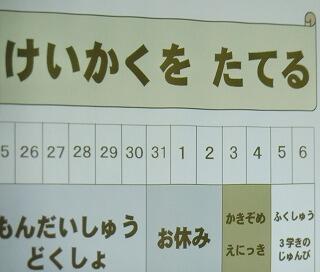 けいかくを たてる
5 26 27 28 29 30 31 1 2 3 4 5 6
もんだいしゅう
どくしょ
お休み
かきぞめ
えにっき
ふくしゅう
3学きの
じゅんび